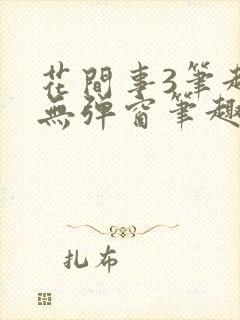 花間事3筆趣
無彈窗筆趣
扎布